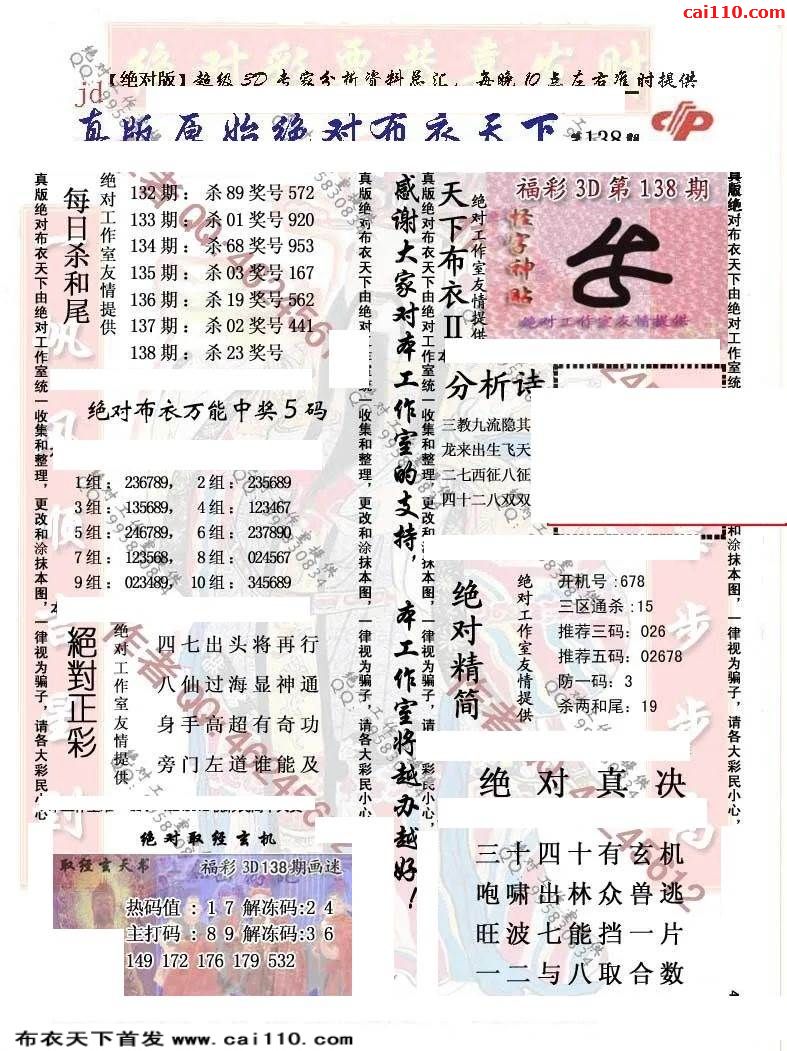 cai110.com
【绝对版】超级3D专家分析资料总汇，每晚10点左右准时提供
jd
真版原始绝对布衣天下
第138期
真版绝对布衣天下由绝对工作室统一收集和整理，更改和涂抹本图，一律视为骗子，请各大彩民小心，
每日杀和尾
绝对工作室友情提供
132期：杀89奖号572
133期：杀01奖号920
134期：杀68奖号953
135期：杀03奖号167
136期：杀19奖号562
137期：杀02奖号441
138期：杀23奖号
绝对布衣万能中奖5码
1组：236789，2组：235689
3组：135689，4组：123467
5组：246789，6组：237890
7组：123568，8组：024567
9组：023489，10组：345689
絕對正彩
绝对工作室友情提供
四七出头将再行
八仙过海显神通
身手高超有奇功
旁门左道谁能及
绝对取经玄机
取经玄天书
福彩3D138期画迷
热码值：17解冻码:24
主打码：89解冻码:36
149 172 176 179 532
真版绝对布衣天下由绝对工作室统一收集和整理，更改和涂抹本图，一律视为骗子，请各大彩民小心，
感谢大家对本工作室的支持，本工作室将越办越好！
真版绝对布衣天下由绝对工作室统一收集和整理，更改和涂抹本图，一律视为骗子，请
彩民小心，
天下布衣II
绝对工作室友情提供
福彩3D第138期
怪字神贴
绝对工作室友情提供
分析诗
三教九流隐其
龙来出生飞天
二七西征八征
四十二八双双
绝对精简
绝对工作室友情提供
开机号:678
三区通杀:15
推荐三码：026
推荐五码：02678
防一码：3
杀两和尾：19
绝对真决
三十四十有玄机
咆啸出林众兽逃
旺波七能挡一片
一二与八取合数
真版绝对布衣天下由绝对工作室统
和涂抹本图，一律视为骗子，请各大彩民小心，
布衣天下首发 www.cai110.com